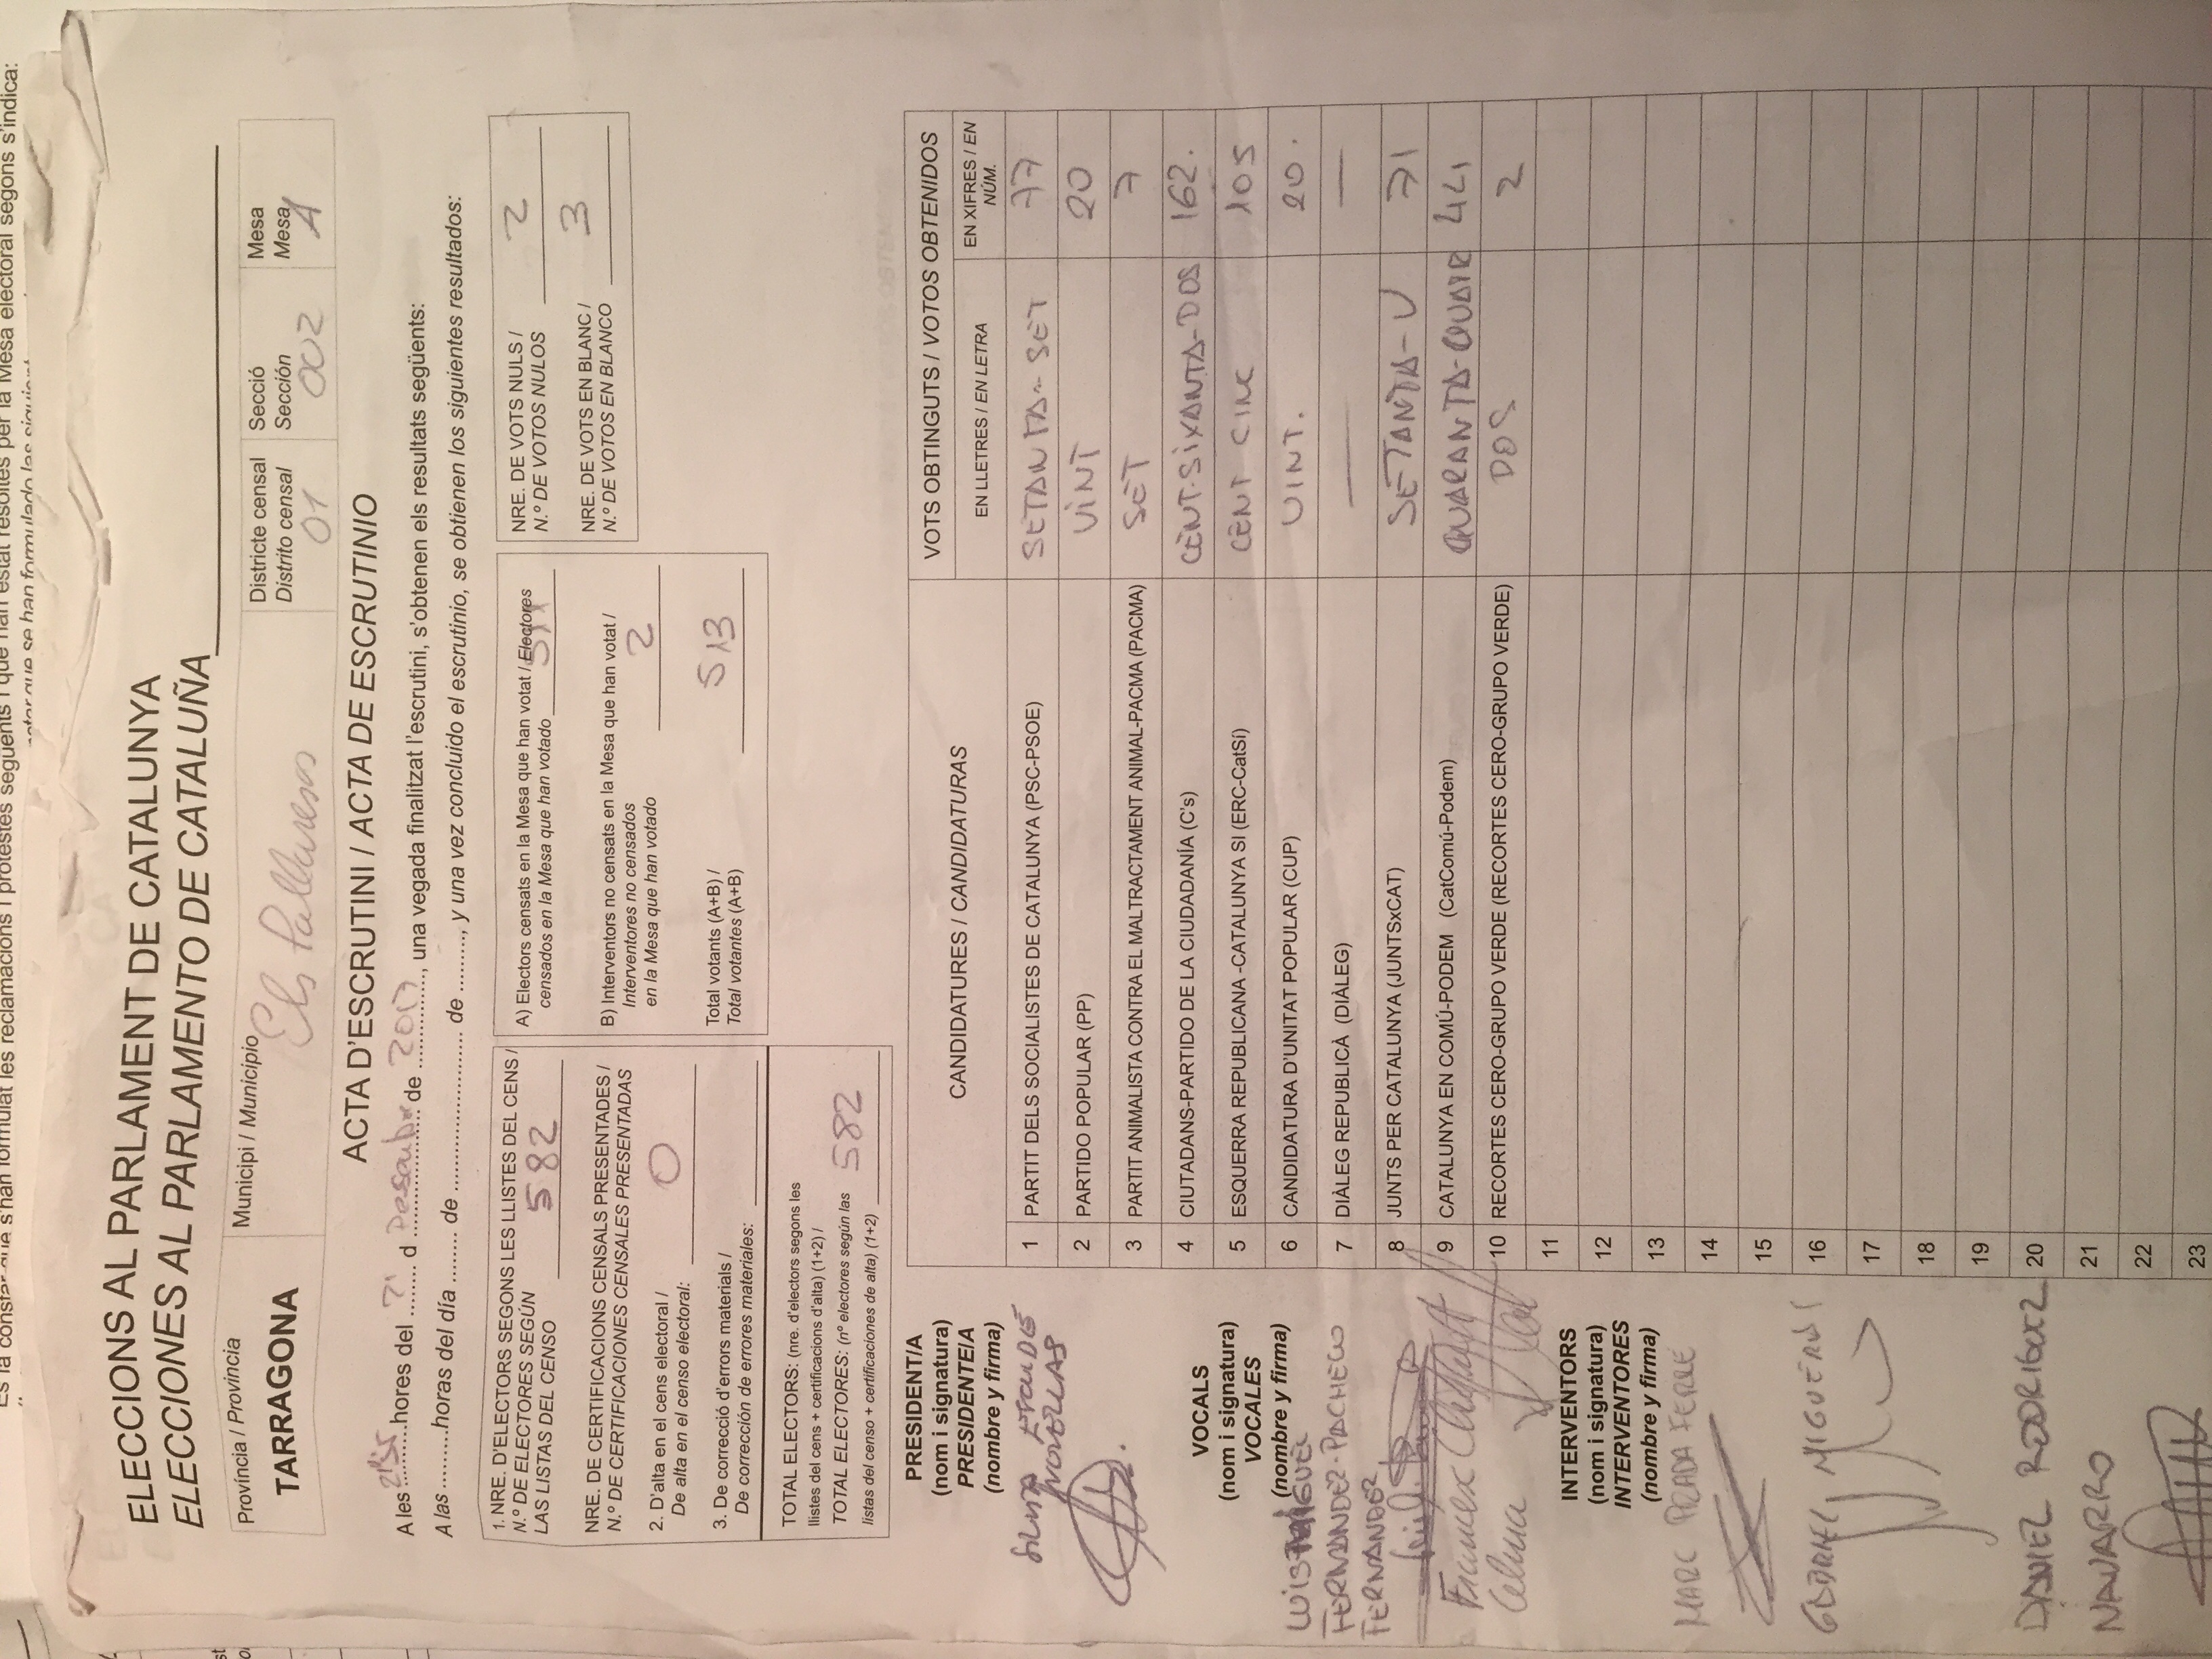 Es fa constar que s'han formulat les reclamacions i protestes següents i que han estat resoltes per la Mesa electoral segons s'indica:
que se han formulado las
ELECCIONS AL PARLAMENT DE CATALUNYA
ELECCIONES AL PARLAMENTO DE CATALUÑA
Província / Provincia
TARRAGONA
Municipi / Municipio
Els Pallaresos
Districte censal
Distrito censal
01
Secció
Sección
002
Mesa
Mesa
A
ACTA D'ESCRUTINI / ACTA DE ESCRUTINIO
A les ..........hores del ........ d Desembre de 2017, una vegada finalitzat l'escrutini, s'obtenen els resultats següents:
A las .........horas del día ........ de ......................... de ........., y una vez concluido el escrutinio, se obtienen los siguientes resultados:
1. NRE. D'ELECTORS SEGONS LES LLISTES DEL CENS /
N.º DE ELECTORES SEGÚN
LAS LISTAS DEL CENSO 582
NRE. DE CERTIFICACIONS CENSALS PRESENTADES /
N.º DE CERTIFICACIONES CENSALES PRESENTADAS
2. D'alta en el cens electoral /
De alta en el censo electoral: 0
3. De correcció d'errors materials /
De corrección de errores materiales:
TOTAL ELECTORS: (nre. d'electors segons les
llistes del cens + certificacions d'alta) (1+2) /
TOTAL ELECTORES: (nº electores según las 582
listas del censo + certificaciones de alta) (1+2)
A) Electors censats en la Mesa que han votat / Electores
censados en la Mesa que han votado 511
B) Interventors no censats en la Mesa que han votat /
Interventores no censados
en la Mesa que han votado 2
Total votants (A+B) /
Total votantes (A+B) 513
NRE. DE VOTS NULS / 2
N.º DE VOTOS NULOS
NRE. DE VOTS EN BLANC / 3
N.º DE VOTOS EN BLANCO
PRESIDENT/A
(nom i signatura)
PRESIDENTE/A
(nombre y firma)
SILVIA ESCUDÉ
NOVELLAS
VOCALS
(nom i signatura)
VOCALES
(nombre y firma)
LUIS MIGUEL
FERNANDEZ-PACHECO
FERNANDEZ
Francesc
Celma
INTERVENTORS
(nom i signatura)
INTERVENTORES
(nombre y firma)
MARC PRADA FERRE
GABRIEL
DANIEL RODRIGUEZ
NAVARRO
CANDIDATURES / CANDIDATURAS
VOTS OBTINGUTS / VOTOS OBTENIDOS
EN LLETRES / EN LETRA
EN XIFRES / EN
NÚM.
1 PARTIT DELS SOCIALISTES DE CATALUNYA (PSC-PSOE) SETANTA-SET 77
2 PARTIDO POPULAR (PP) VINT 20
3 PARTIT ANIMALISTA CONTRA EL MALTRACTAMENT ANIMAL-PACMA (PACMA) SET 7
4 CIUTADANS-PARTIDO DE LA CIUDADANÍA (C's) CENT-SIXANTA-DOS 162.
5 ESQUERRA REPUBLICANA -CATALUNYA SI (ERC-CatSí) CENT CINC 105
6 CANDIDATURA D'UNITAT POPULAR (CUP) VINT. 20.
7 DIÀLEG REPUBLICÀ (DIÀLEG) — —
8 JUNTS PER CATALUNYA (JUNTSxCAT) SETANTA-U 71
9 CATALUNYA EN COMÚ-PODEM (CatComú-Podem) QUARANTA-QUATR 44
10 RECORTES CERO-GRUPO VERDE (RECORTES CERO-GRUPO VERDE) DOS 2
11
12
13
14
15
16
17
18
19
20
21
22
23